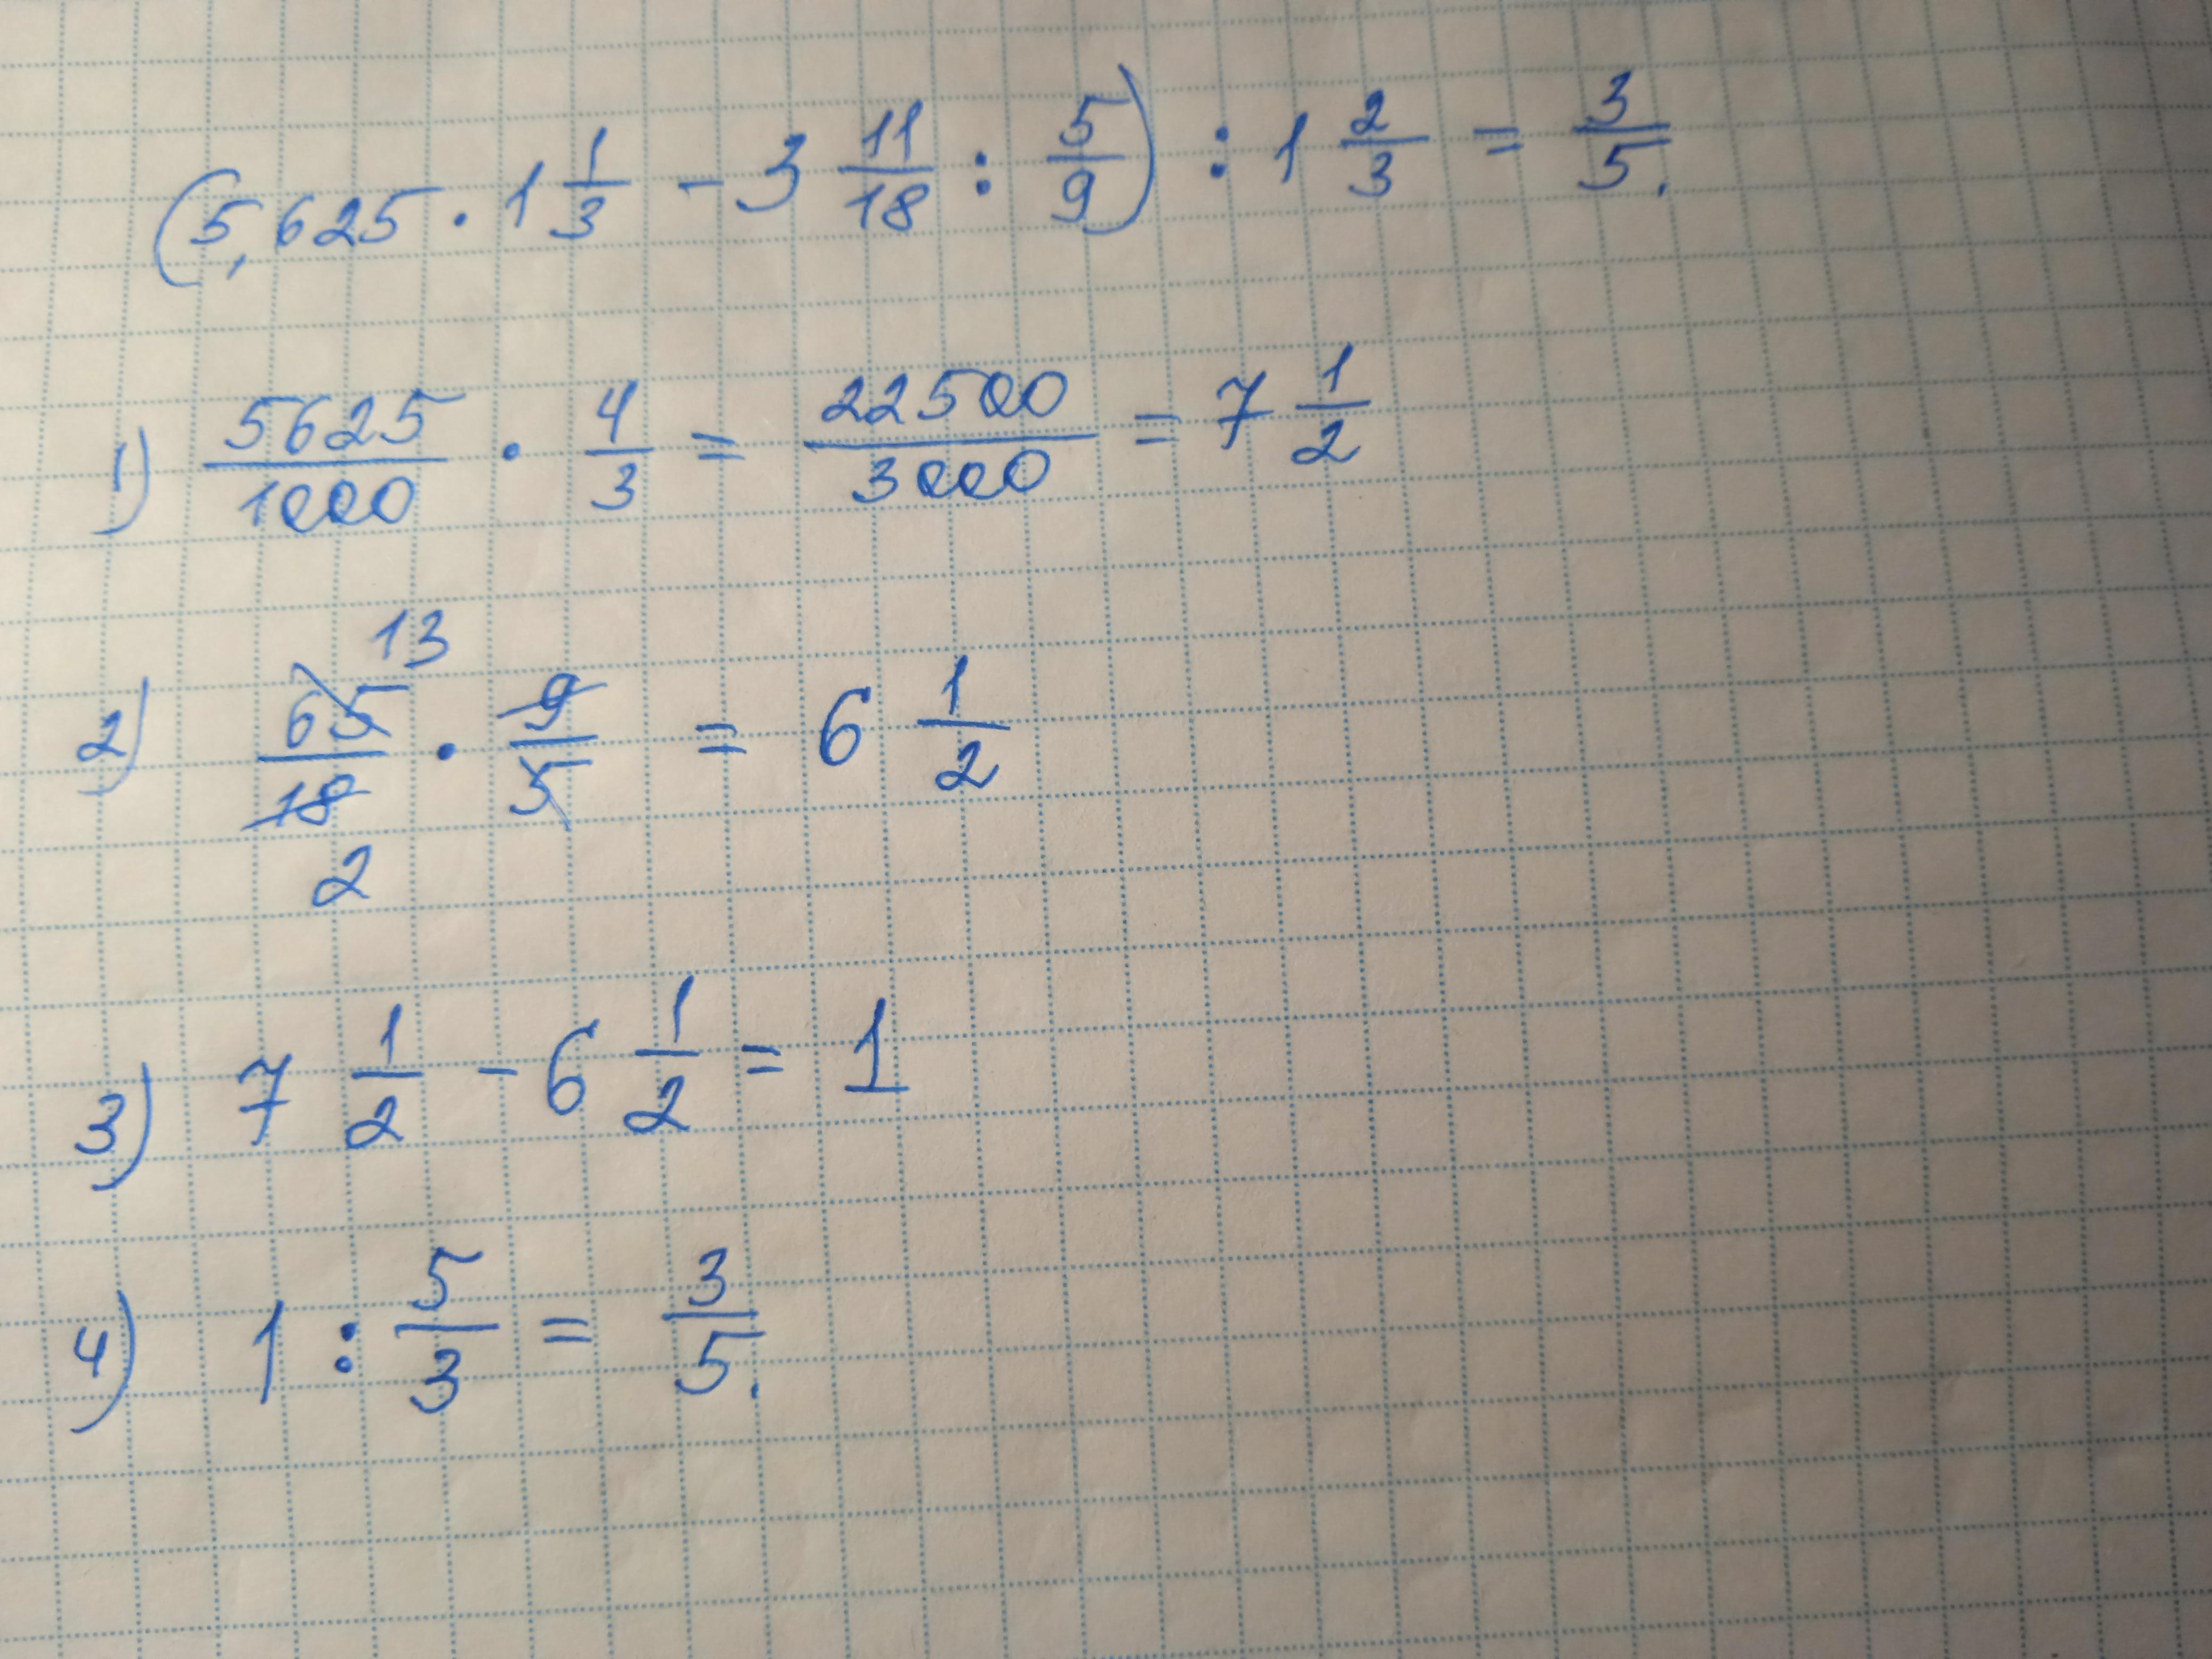 (5,625 · 1 1/3 - 3 11/18 : 5/9) : 1 2/3 = 3/5.
1) 5625/1000 · 4/3 = 22500/3000 = 7 1/2
13
2) 65/18 · 9/5 = 6 1/2
2
3) 7 1/2 - 6 1/2 = 1
4) 1 : 5/3 = 3/5.